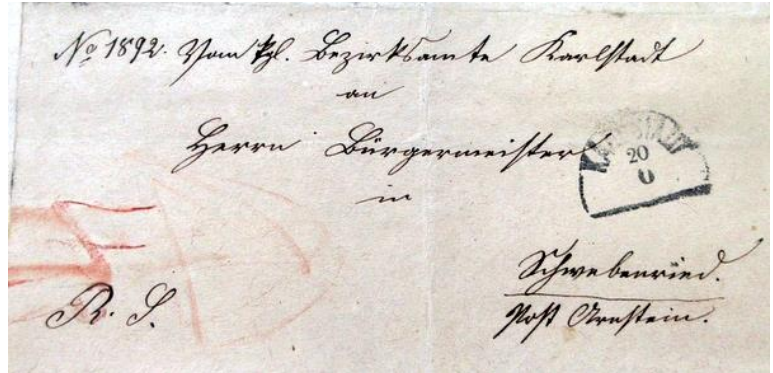 No 1892. Vom Kgl. Bezirksamte Karlstadt
an
Herrn Bürgermeister
in
Schwebenried.
Post Arnstein.
R. S.
KARLSTADT
20